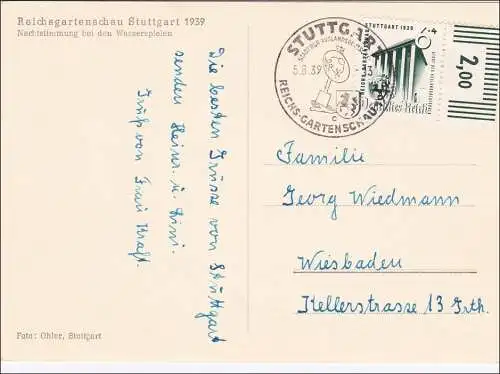 Reichsgartenschau Stuttgart 1939
Nachtstimmung bei den Wasserspielen
STUTTGART
5.8.39
REICHS-GARTENSCHAU
c
STUTTGART 1939
6+4
Deutsches Reich
2,00
Die besten Grüsse von Stuttgart
senden Heinr. u. Dini.
Gruß von Frau Kraft.
Familie
Georg Wiedmann
Wiesbaden
Kellerstrasse 13
Foto: Ohler, Stuttgart